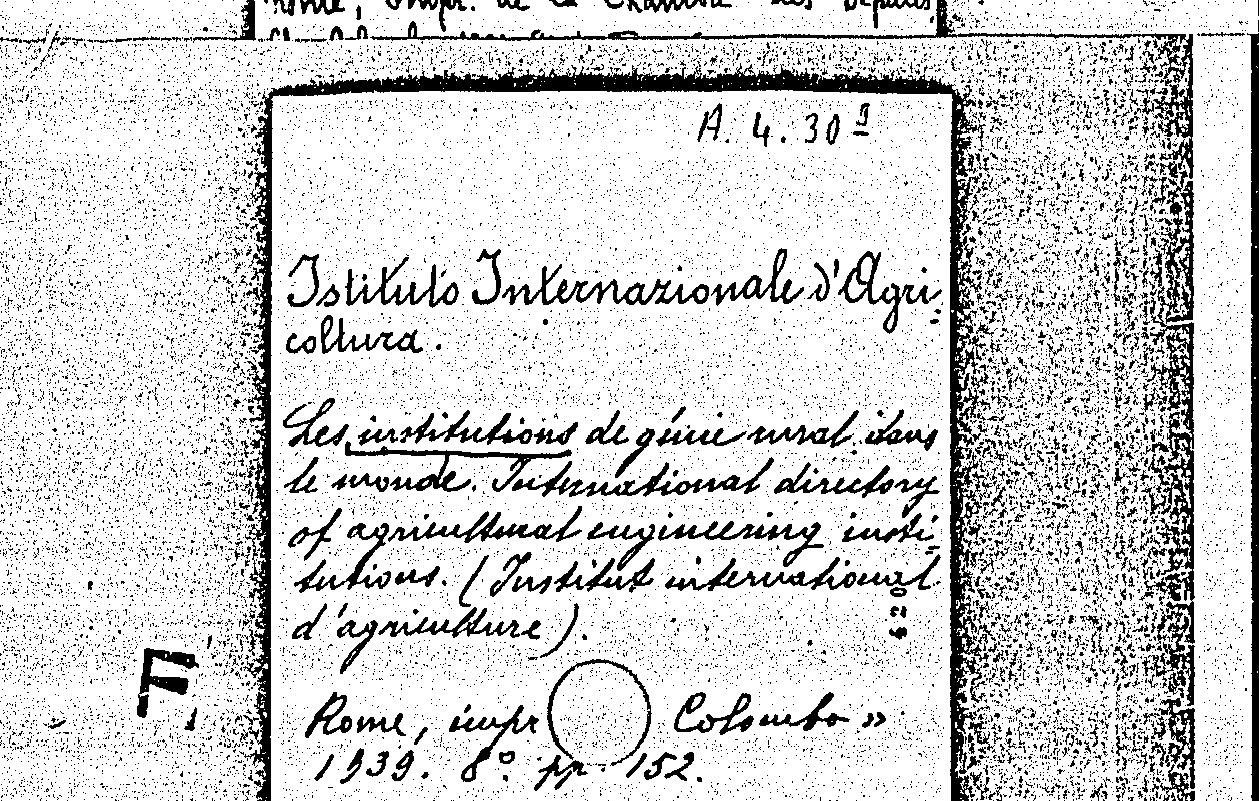 Rome, Impr. de la Chambre des Députés,
A. 4. 30 9
Istituto Internazionale d'Agri-
coltura.
Les institutions de génie rural dans
le monde. International directory
of agricultural engineering insti-
tutions. (Institut international
d'agriculture).
620
Rome, impr Colombo »
1939. 8° pp. 152.
F